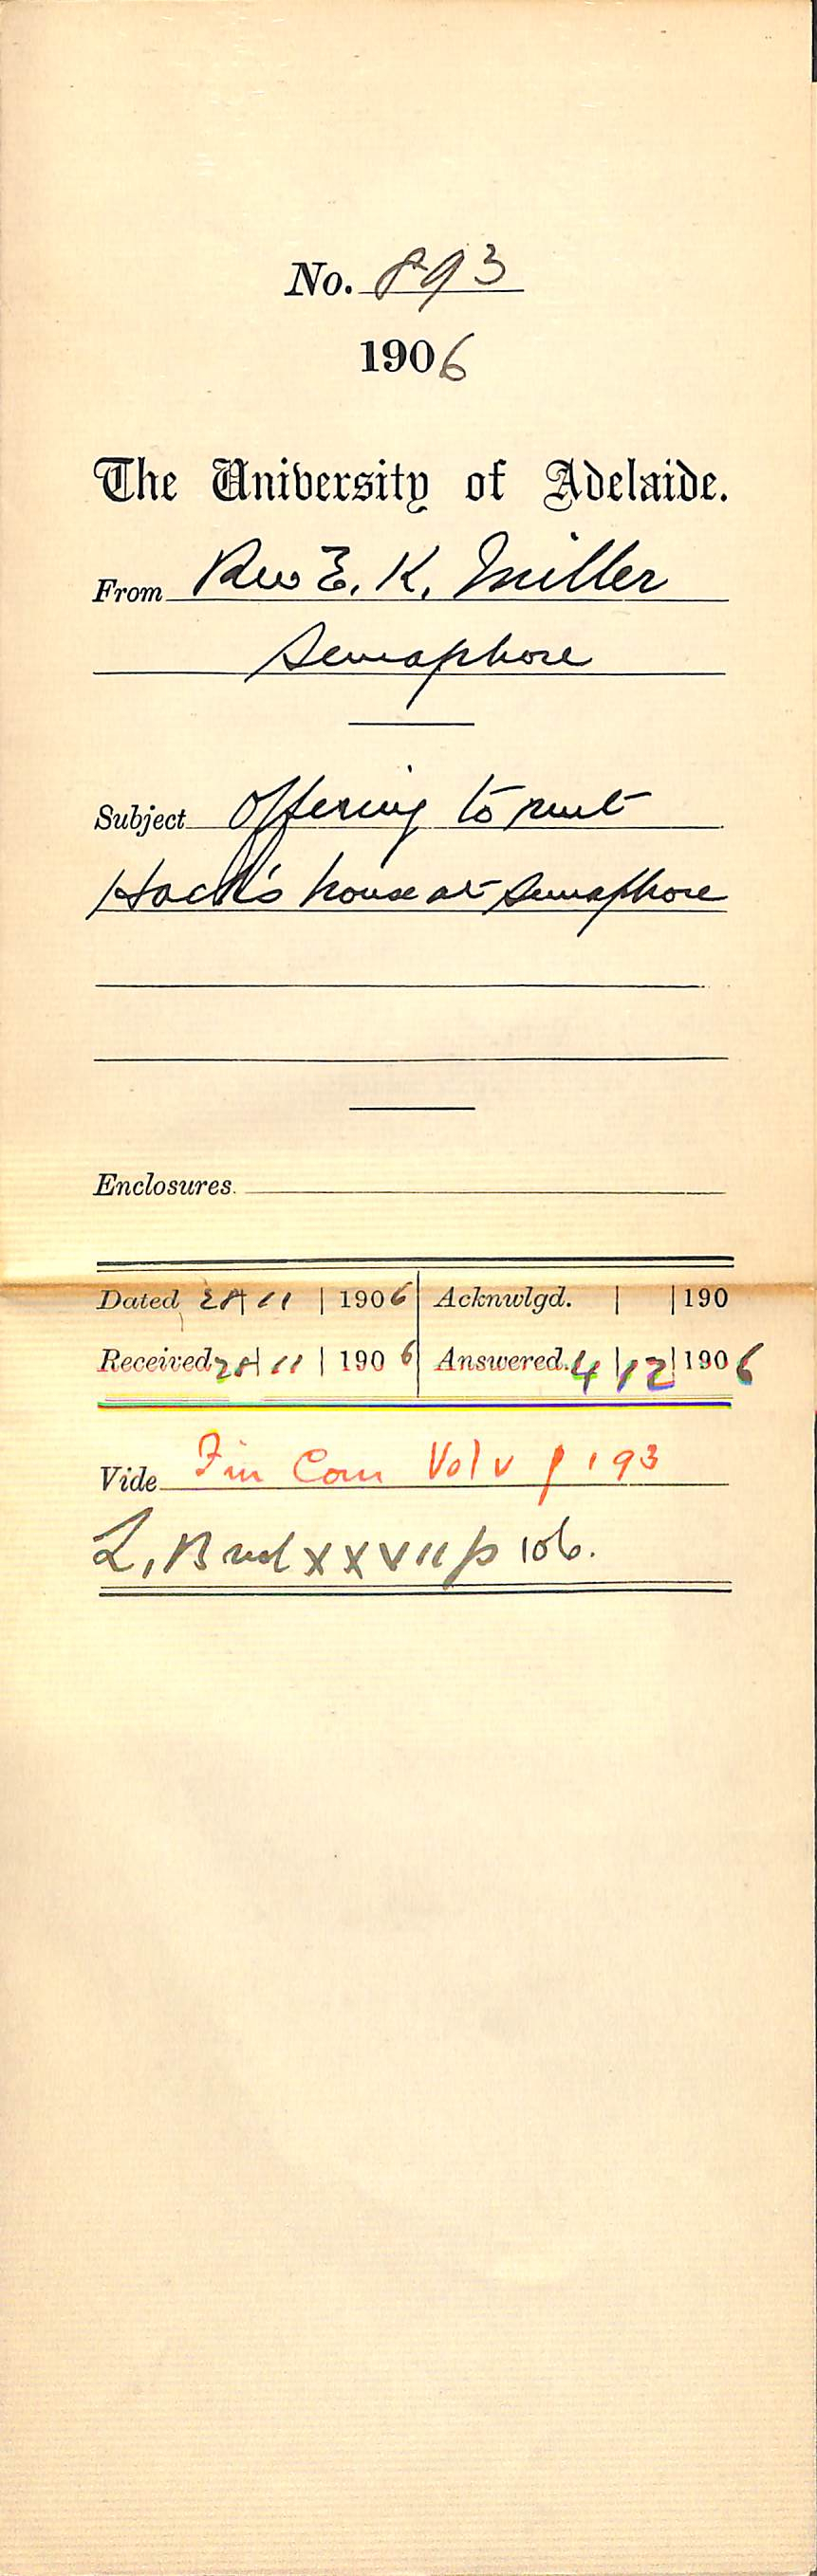 No. 893
1906
The University of Adelaide.
From Rev E. K. Miller
Semaphore
Subject Offering to rent
Hack's house at Semaphore
Enclosures.
Dated 28 | 11 | 1906 Acknwlgd. | | 190
Received 28 | 11 | 1906 Answered. 4 | 12 | 1906
Vide Fin Com Vol V p 193
L. B vol XXVII p 106.